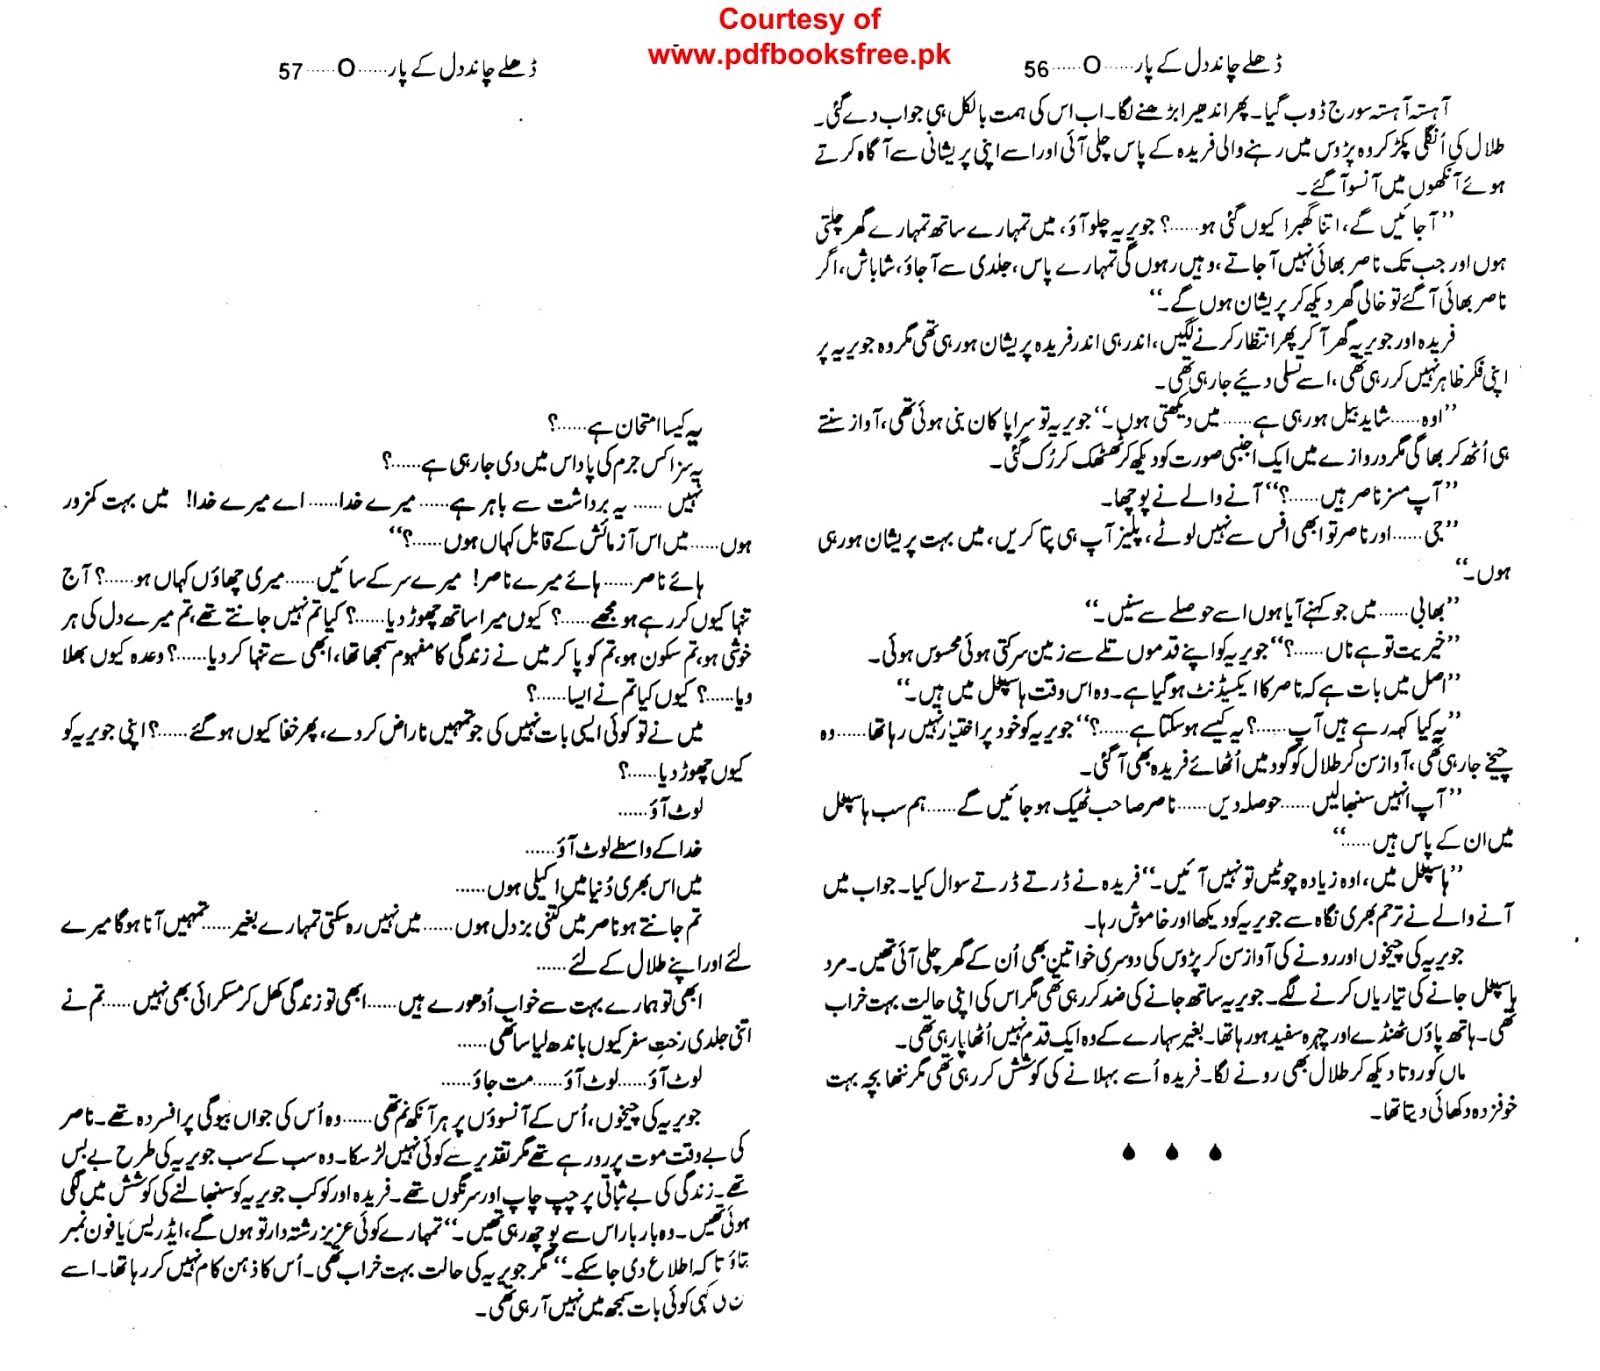 Courtesy of
www.pdfbooksfree.pk
ڈھلے چاند دل کے پار ......O...... 56
آہستہ آہستہ سورج ڈوب گیا۔ پھر اندھیرا بڑھنے لگا۔ اب اس کی ہمت بالکل ہی جواب دے گئی۔
طلال کی اُنگلی پکڑ کر وہ پڑوس میں رہنے والی فریدہ کے پاس چلی آئی اور اسے اپنی پریشانی سے آگاہ کرتے
ہوئے آنکھوں میں آنسو آ گئے۔
’’آ جائیں گے، اتنا گھبرا کیوں گئی ہو......؟ جویریہ چلو آؤ، میں تمہارے ساتھ تمہارے گھر چلتی
ہوں اور جب تک ناصر بھائی نہیں آ جاتے، وہیں رہوں گی تمہارے پاس، جلدی سے آ جاؤ، شاباش، اگر
ناصر بھائی آ گئے تو خالی گھر دیکھ کر پریشان ہوں گے۔‘‘
فریدہ اور جویریہ گھر آ کر پھر انتظار کرنے لگیں، اندر ہی اندر فریدہ پریشان ہو رہی تھی مگر وہ جویریہ پر
اپنی فکر ظاہر نہیں کر رہی تھی، اسے تسلی دیئے جا رہی تھی۔
’’اوہ...... شاید بیل ہو رہی ہے...... میں دیکھتی ہوں۔‘‘ جویریہ تو سراپا کان بنی ہوئی تھی، آواز سنتے
ہی اُٹھ کر بھاگی مگر دروازے میں ایک اجنبی صورت کو دیکھ کر ٹھٹھک کر رُک گئی۔
’’آپ مسز ناصر ہیں......؟‘‘ آنے والے نے پوچھا۔
’’جی...... اور ناصر تو ابھی افس سے نہیں لوٹے، پلیز آپ ہی پتا کریں، میں بہت پریشان ہو رہی
ہوں۔‘‘
’’بھابی...... میں جو کہنے آیا ہوں اسے حوصلے سے سنیں۔‘‘
’’خیریت تو ہے ناں......؟‘‘ جویریہ کو اپنے قدموں تلے سے زمین سرکتی ہوئی محسوس ہوئی۔
’’اصل میں بات ہے کہ ناصر کا ایکسیڈنٹ ہو گیا ہے۔ وہ اس وقت ہاسپٹل میں ہیں۔‘‘
’’یہ کیا کہہ رہے ہیں آپ......؟ یہ کیسے ہو سکتا ہے......؟‘‘ جویریہ کو خود پر اختیار نہیں رہا تھا...... وہ
چیخے جا رہی تھی، آواز سن کر طلال کو گود میں اُٹھائے فریدہ بھی آ گئی۔
’’آپ انہیں سنبھالیں...... حوصلہ دیں...... ناصر صاحب ٹھیک ہو جائیں گے...... ہم سب ہاسپٹل
میں ان کے پاس ہیں......‘‘
’’ہاسپٹل میں، اوہ زیادہ چوٹیں تو نہیں آئیں۔‘‘ فریدہ نے ڈرتے ڈرتے سوال کیا۔ جواب میں
آنے والے نے ترحم بھری نگاہ سے جویریہ کو دیکھا اور خاموش رہا۔
جویریہ کی چیخوں اور رونے کی آواز سن کر پڑوس کی دوسری خواتین بھی اُن کے گھر چلی آئی تھیں۔ مرد
ہاسپٹل جانے کی تیاریاں کرنے لگے۔ جویریہ ساتھ جانے کی ضد کر رہی تھی مگر اس کی اپنی حالت بہت خراب
تھی۔ ہاتھ پاؤں ٹھنڈے اور چہرہ سفید ہو رہا تھا۔ بغیر سہارے کے وہ ایک قدم نہیں اُٹھا پا رہی تھی۔
ماں کو روتا دیکھ کر طلال بھی رونے لگا۔ فریدہ اُسے بہلانے کی کوشش کر رہی تھی مگر ننھا بچہ بہت
خوفزدہ دکھائی دیتا تھا۔
ڈھلے چاند دل کے پار ......O...... 57
یہ کیسا امتحان ہے......؟
یہ سزا کس جرم کی پاداس میں دی جا رہی ہے......؟
نہیں...... یہ برداشت سے باہر ہے...... میرے خدا...... اے میرے خدا! میں بہت کمزور
ہوں...... میں اس آزمائش کے قابل کہاں ہوں......؟‘‘
ہائے ناصر...... ہائے میرے ناصر! میرے سر کے سائیں...... میری چھاؤں کہاں ہو......؟ آج
تنہا کیوں کر رہے ہو مجھے......؟ کیوں میرا ساتھ چھوڑ دیا......؟ کیا تم نہیں جانتے تھے، تم میرے دل کی ہر
خوشی ہو، تم سکون ہو، تم کو پا کر میں نے زندگی کا مفہوم سمجھا تھا، ابھی سے تنہا کر دیا......؟ وعدہ کیوں بھلا
دیا......؟ کیوں کیا تم نے ایسا......؟
میں نے تو کوئی ایسی بات نہیں کی جو تمہیں ناراض کر دے، پھر خفا کیوں ہو گئے......؟ اپنی جویریہ کو
کیوں چھوڑ دیا......؟
لوٹ آؤ......
خدا کے واسطے لوٹ آؤ......
میں اس بھری دُنیا میں اکیلی ہوں......
تم جانتے ہو ناصر میں کتنی بزدل ہوں...... میں نہیں رہ سکتی تمہارے بغیر...... تمہیں آنا ہو گا میرے
لئے اور اپنے طلال کے لئے......
ابھی تو ہمارے بہت سے خواب اُدھورے ہیں...... ابھی تو زندگی کھل کر مسکرائی بھی نہیں...... تم نے
اتنی جلدی رختِ سفر کیوں باندھ لیا ساتھی......
لوٹ آؤ...... لوٹ آؤ...... مت جاؤ......
جویریہ کی چیخوں، اُس کے آنسوؤں پر ہر آنکھ نم تھی...... وہ اُس کی جواں بیوگی پر افسردہ تھے۔ ناصر
کی بے وقت موت پر رو رہے تھے مگر تقدیر سے کوئی نہیں لڑ سکا۔ وہ سب کے سب جویریہ کی طرح بے بس
تھے۔ زندگی کی بے ثباتی پر چپ چاپ اور سرنگوں تھے۔ فریدہ اور کوکب جویریہ کو سنبھالنے کی کوشش میں لگی
ہوئی تھیں۔ وہ بار بار اس سے پوچھ رہی تھیں۔ ‘‘تمہارے کوئی عزیز رشتہ دار تو ہوں گے، ایڈریس یا فون نمبر
بتاؤ تاکہ اطلاع دی جا سکے۔‘‘ مگر جویریہ کی حالت بہت خراب تھی۔ اُس کا ذہن کام نہیں کر رہا تھا۔ اسے
کہی کوئی بات سمجھ میں نہیں آ رہی تھی۔